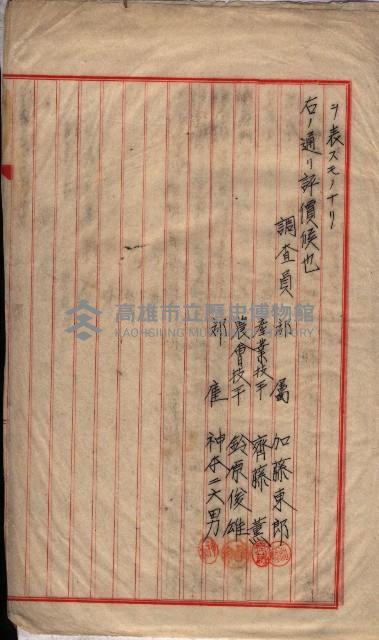 ヲ表スモノナリ
右ノ通リ評價候也
調査員 郡屬 加藤東郎
産業技手 齊藤薫
農會技手 鈴原俊雄
郡雇 神本二六男
高雄市立歷史博物館
KAOHSIUNG MUSEUM OF HISTORY